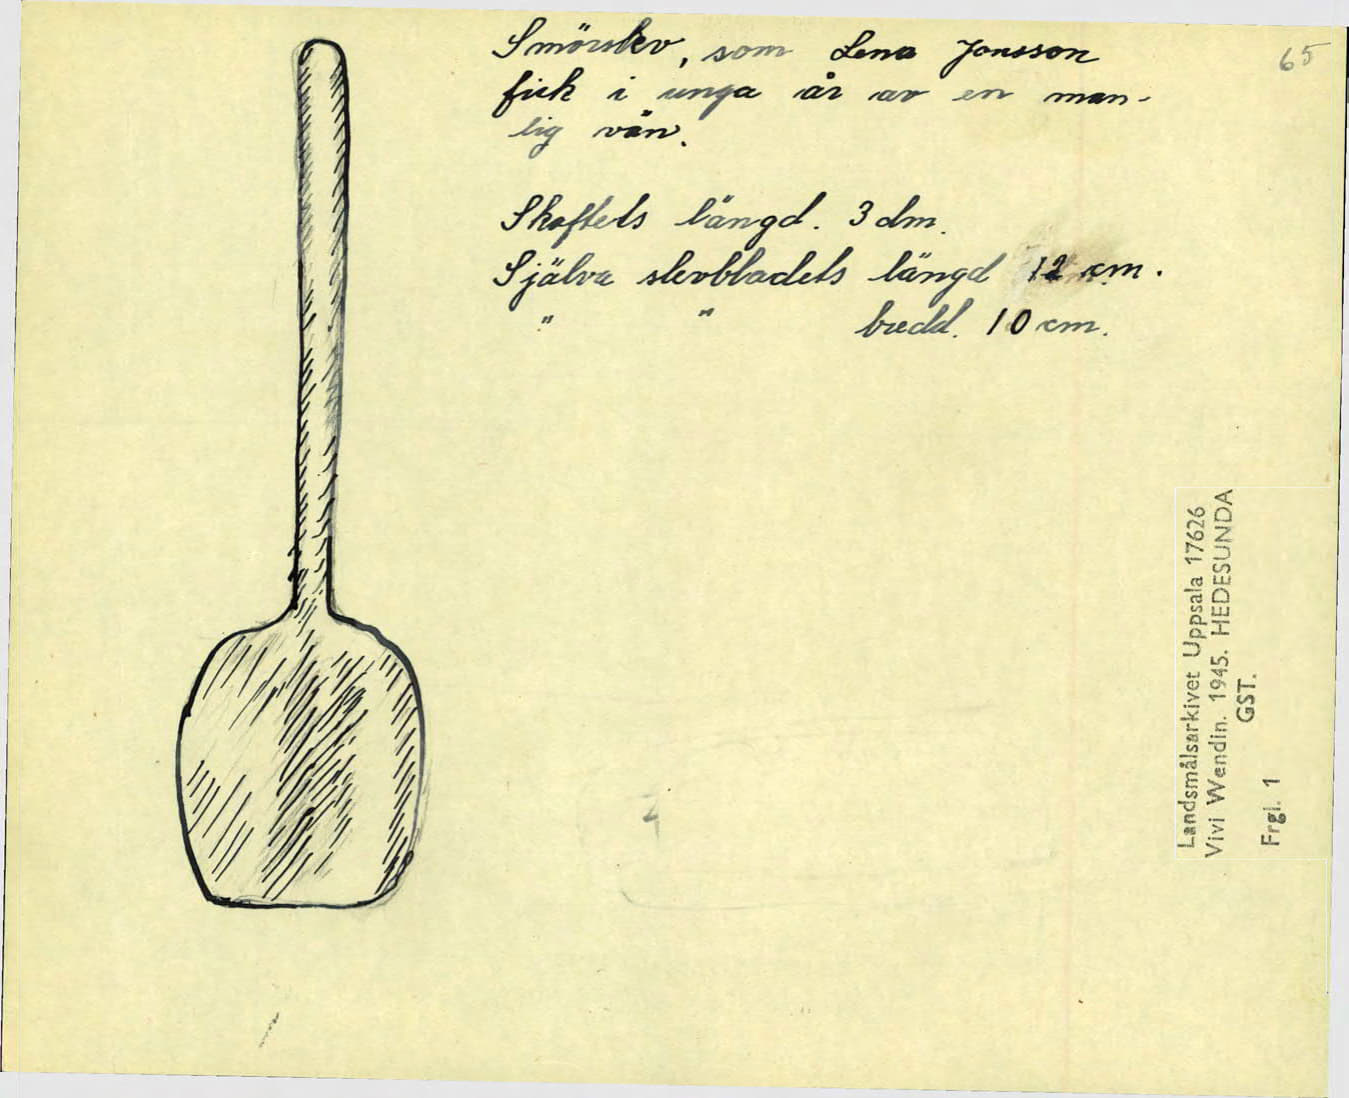 Smörslev, som Lena Jonsson
fick i unga år av en man-
lig vän.
Skaftets längd. 3 dm.
Själva slevbladets längd 12 cm.
" " bredd. 10 cm.
65
Landsmålsarkivet Uppsala 17626
Vivi Wendin. 1945. HEDESUNDA
GST.
Frgl. 1